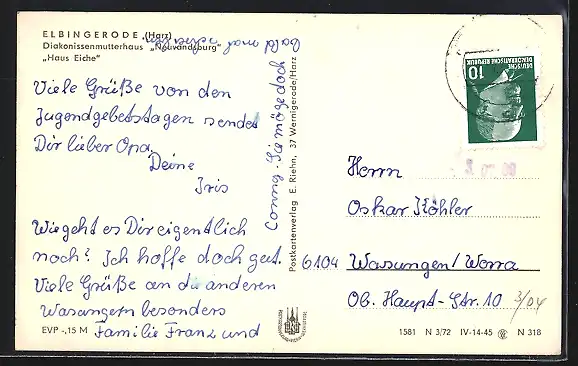 ELBINGERODE (Harz)
Diakonissenmutterhaus „Neuvandsburg"
„Haus Eiche"
Viele Grüße von den
Jugendgebetstagen sendet
Dir lieber Opa.
Deine
Iris
Wie geht es Dir eigentlich
noch? Ich hoffe doch gut.
Viele Grüße an die anderen
Wasungern besonders
Familie Franz und
Conny. Sie möge doch
bald mal schreiben
EVP -,15 M
Postkartenverlag E. Riehn, 37 Wernigerode/Harz
DEUTSCHE
DEMOKRATISCHE REPUBLIK
10
Herrn
Oskar Köhler
6104 Wasungen/Werra
Ob. Haupt-Str. 10
3/04
1581 N 3/72 IV-14-45 N 318